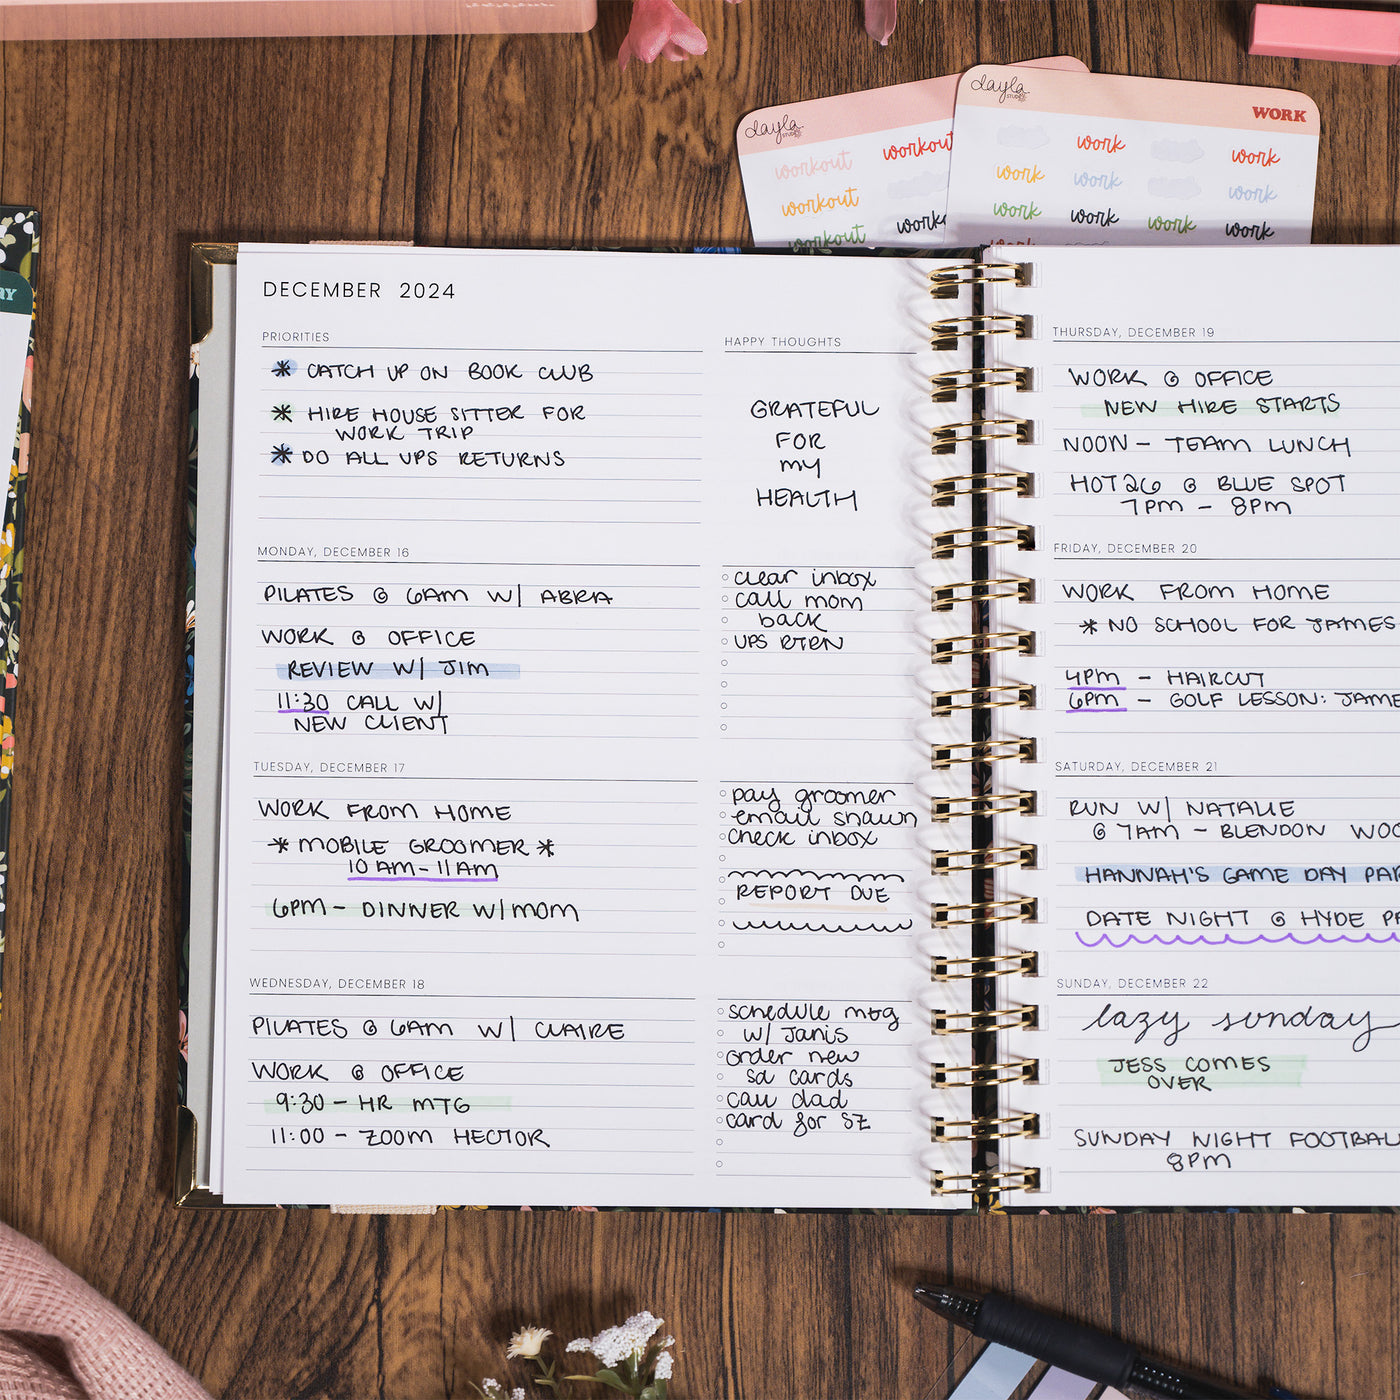 dayla
STUDIO
workout
workout
workout
workout
dayla
STUDIO
WORK
work
work
work
work
work
work
work
work
work
work
AY
DECEMBER 2024
PRIORITIES
* CATCH UP ON BOOK CLUB
* HIRE HOUSE SITTER FOR
WORK TRIP
* DO ALL UPS RETURNS
HAPPY THOUGHTS
GRATEFUL
FOR
MY
HEALTH
MONDAY, DECEMBER 16
PILATES @ 6AM W/ ABRA
WORK @ OFFICE
REVIEW W/ JIM
11:30 CALL W/
NEW CLIENT
clear inbox
call mom
back
UPS RTRN
TUESDAY, DECEMBER 17
WORK FROM HOME
* MOBILE GROOMER *
10 AM - 11 AM
6PM - DINNER W/ MOM
pay groomer
email shawn
check inbox
REPORT DUE
WEDNESDAY, DECEMBER 18
PILATES @ 6AM W/ CLAIRE
WORK @ OFFICE
9:30 - HR MTG
11:00 - ZOOM HECTOR
schedule mtg
w/ Janis
order new
sd cards
call dad
card for SZ
THURSDAY, DECEMBER 19
WORK @ OFFICE
NEW HIRE STARTS
NOON - TEAM LUNCH
HOT 26 @ BLUE SPOT
7PM - 8PM
FRIDAY, DECEMBER 20
WORK FROM HOME
* NO SCHOOL FOR JAMES
4PM - HAIRCUT
6PM - GOLF LESSON: JAME
SATURDAY, DECEMBER 21
RUN W/ NATALIE
@ 7AM - BLENDON WOO
HANNAH'S GAME DAY PAR
DATE NIGHT @ HYDE PA
SUNDAY, DECEMBER 22
lazy sunday
JESS COMES
OVER
SUNDAY NIGHT FOOTBAL
8PM